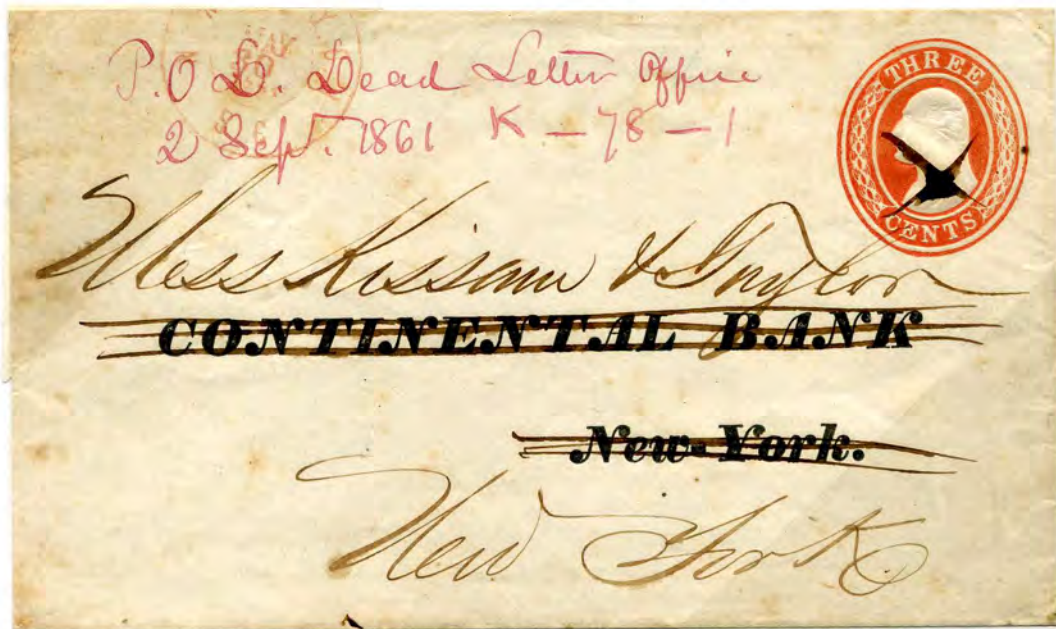 P.O D. Dead Letter Office
2 Sept. 1861 K - 78 - 1
THREE
CENTS
Mess Kissam & Taylor
CONTINENTAL BANK
New-York.
New York